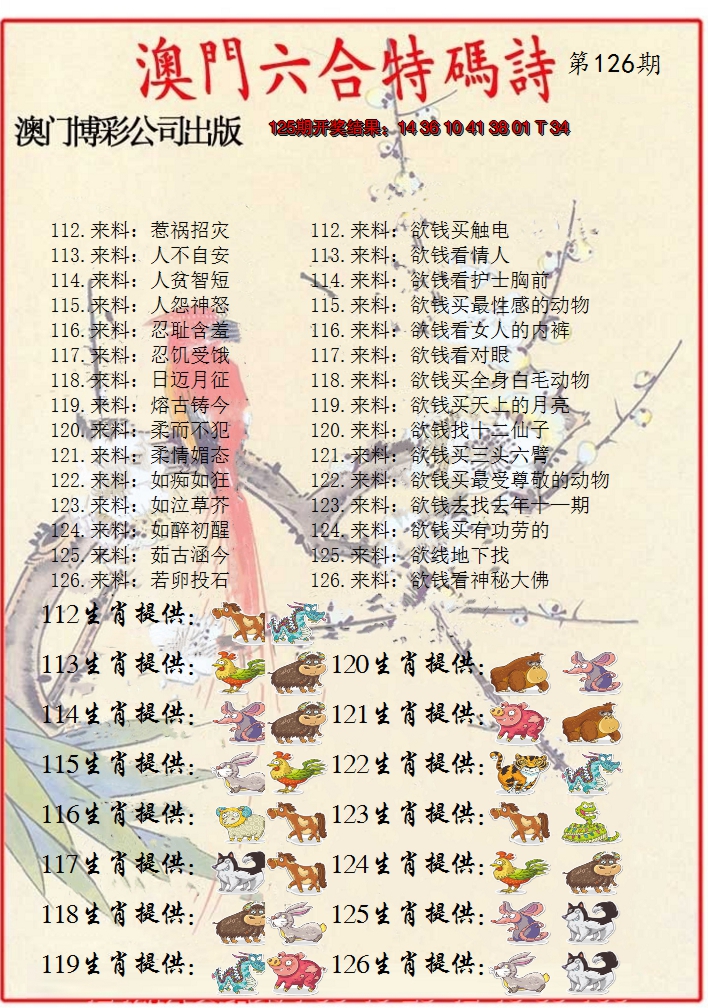 澳門六合特碼詩 第126期
澳门博彩公司出版 125期开奖结果：14 36 10 41 38 01 T 34
112.来料：惹祸招灾 112.来料：欲钱买触电
113.来料：人不自安 113.来料：欲钱看情人
114.来料：人贫智短 114.来料：欲钱看护士胸前
115.来料：人怨神怒 115.来料：欲钱买最性感的动物
116.来料：忍耻含羞 116.来料：欲钱看女人的内裤
117.来料：忍饥受饿 117.来料：欲钱看对眼
118.来料：日迈月征 118.来料：欲钱买全身白毛动物
119.来料：熔古铸今 119.来料：欲钱买天上的月亮
120.来料：柔而不犯 120.来料：欲钱找十二仙子
121.来料：柔情媚态 121.来料：欲钱买三头六臂
122.来料：如痴如狂 122.来料：欲钱买最受尊敬的动物
123.来料：如泣草芥 123.来料：欲钱去找去年十一期
124.来料：如醉初醒 124.来料：欲钱买有功劳的
125.来料：茹古涵今 125.来料：欲线地下找
126.来料：若卵投石 126.来料：欲钱看神秘大佛
112生肖提供：
113生肖提供： 120生肖提供：
114生肖提供： 121生肖提供：
115生肖提供： 122生肖提供：
116生肖提供： 123生肖提供：
117生肖提供： 124生肖提供：
118生肖提供： 125生肖提供：
119生肖提供： 126生肖提供：